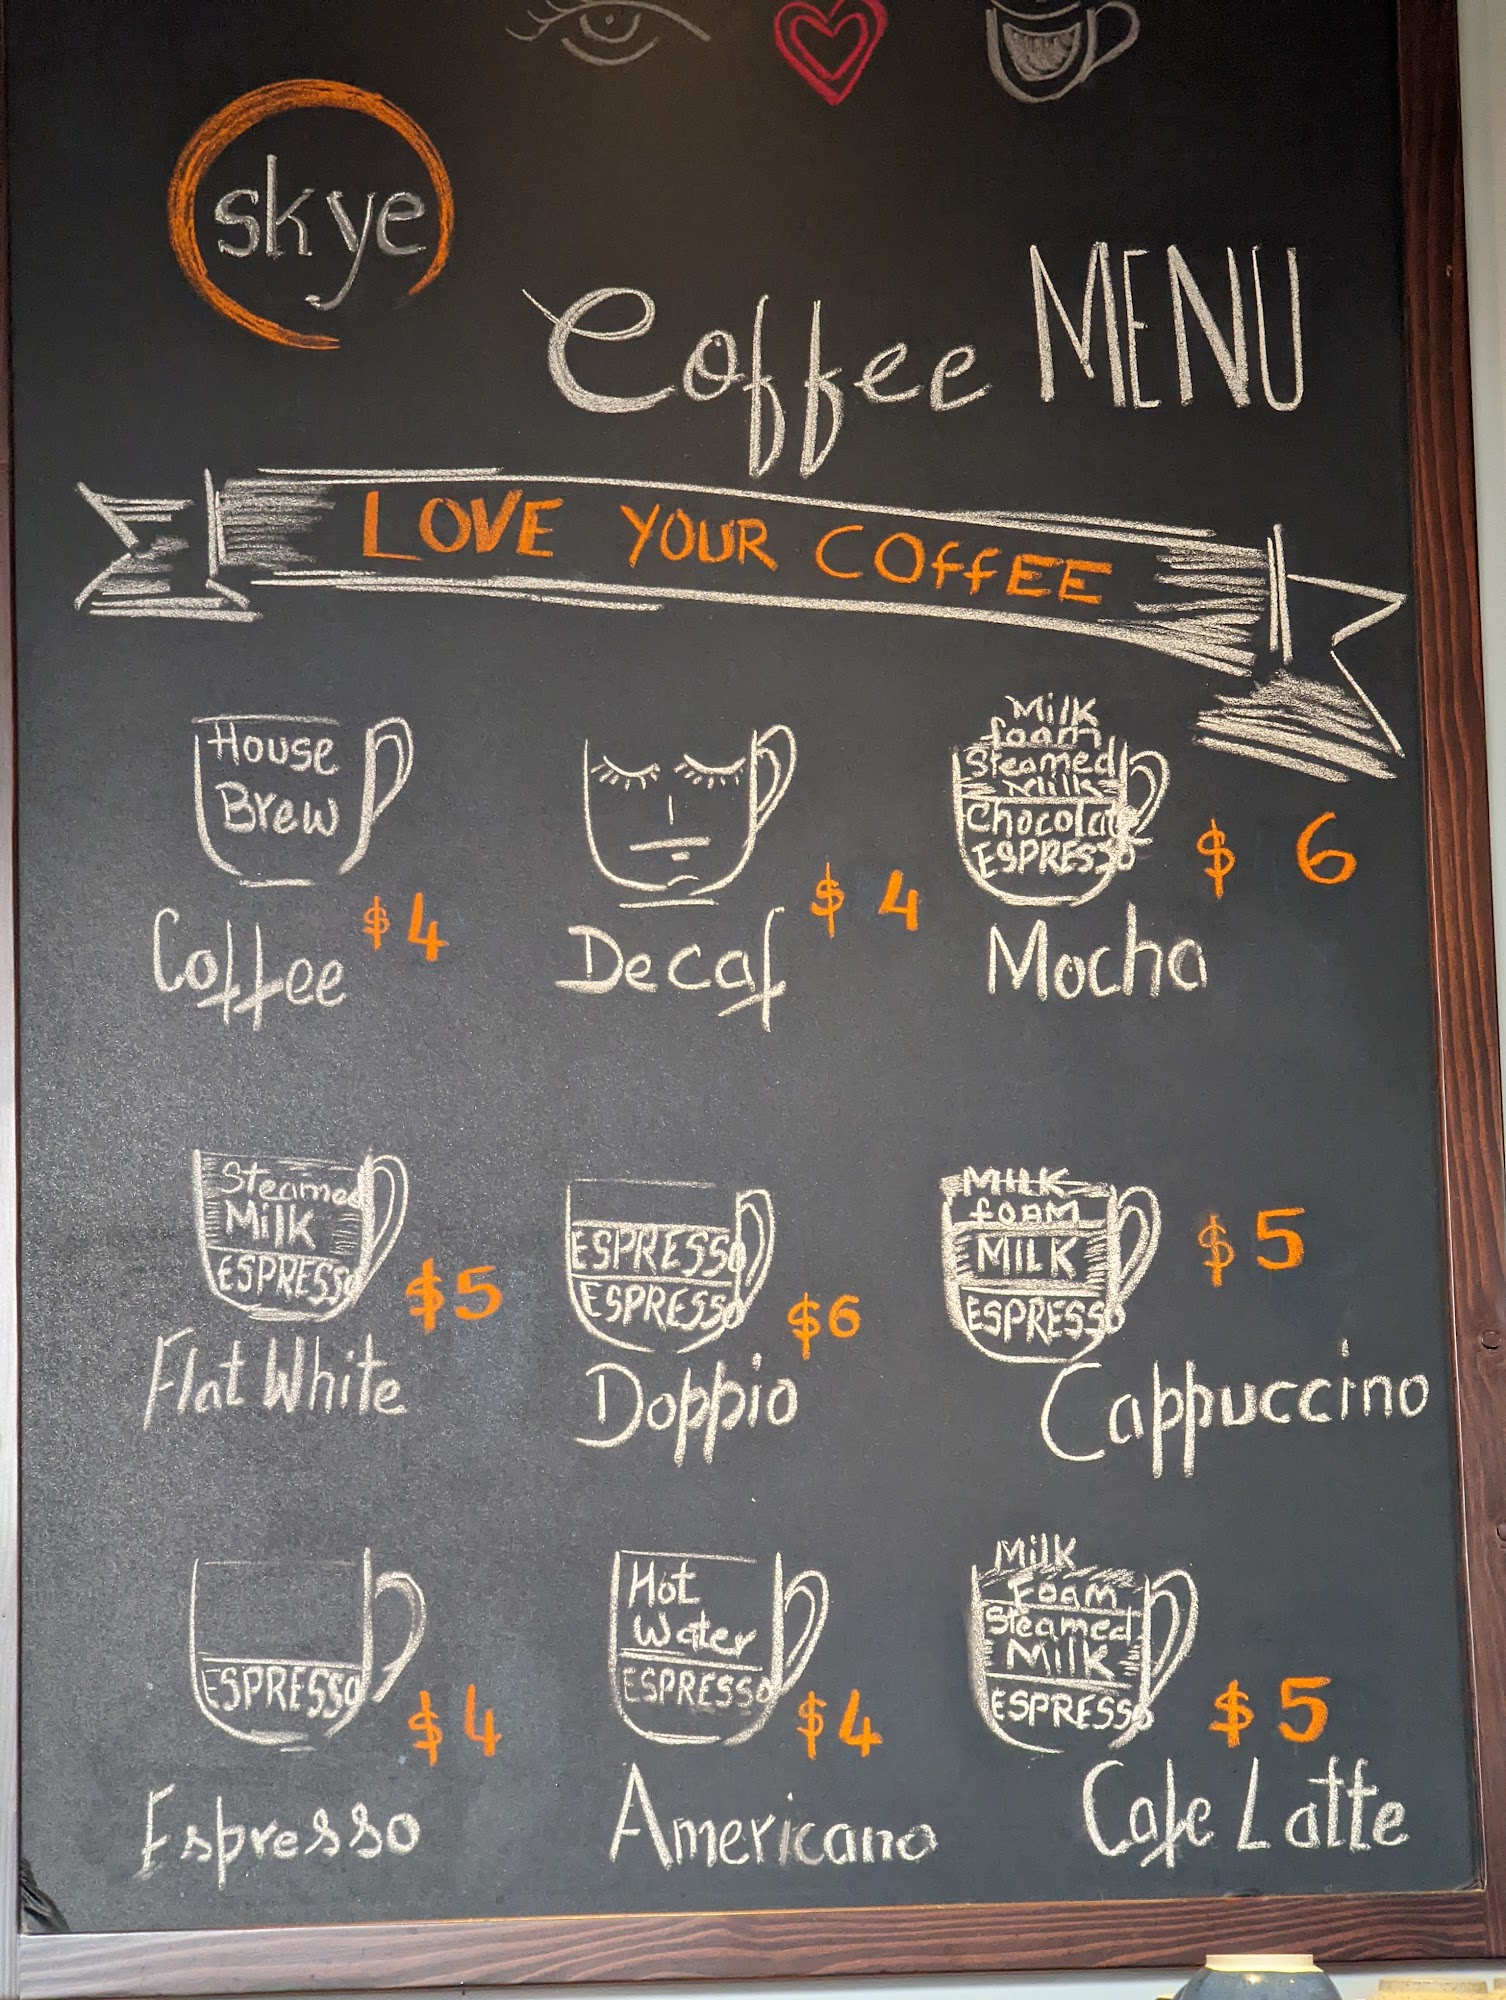 skye
Coffee MENU
LOVE YOUR COffEE
House
Brew
$4
Coffee
$ 4
Decaf
Milk
foam
Steamed
Milk
Chocolate
ESPRESSO
$ 6
Mocha
Steamed
Milk
ESPRESSO
$5
Flat White
ESPRESSO
ESPRESSO
$6
Doppio
MILK
foam
MILK
ESPRESSO
$5
Cappuccino
ESPRESSO
$4
Espresso
Hot
Water
ESPRESSO
$4
Americano
Milk
Foam
Steamed
Milk
ESPRESSO
$5
Cafe Latte